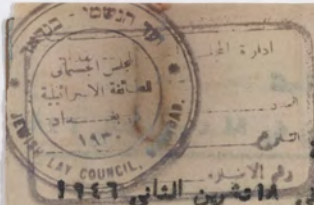 ועד הגשמי - בגדאד
المجلس الجسماني
للطائفة الاسرائيلية
بغداد
١٩٣٠
JEWISH LAY COUNCIL, BAGHDAD.
ادارة
العدد
رقم
١٨ تشرين الثاني ١٩٤٦